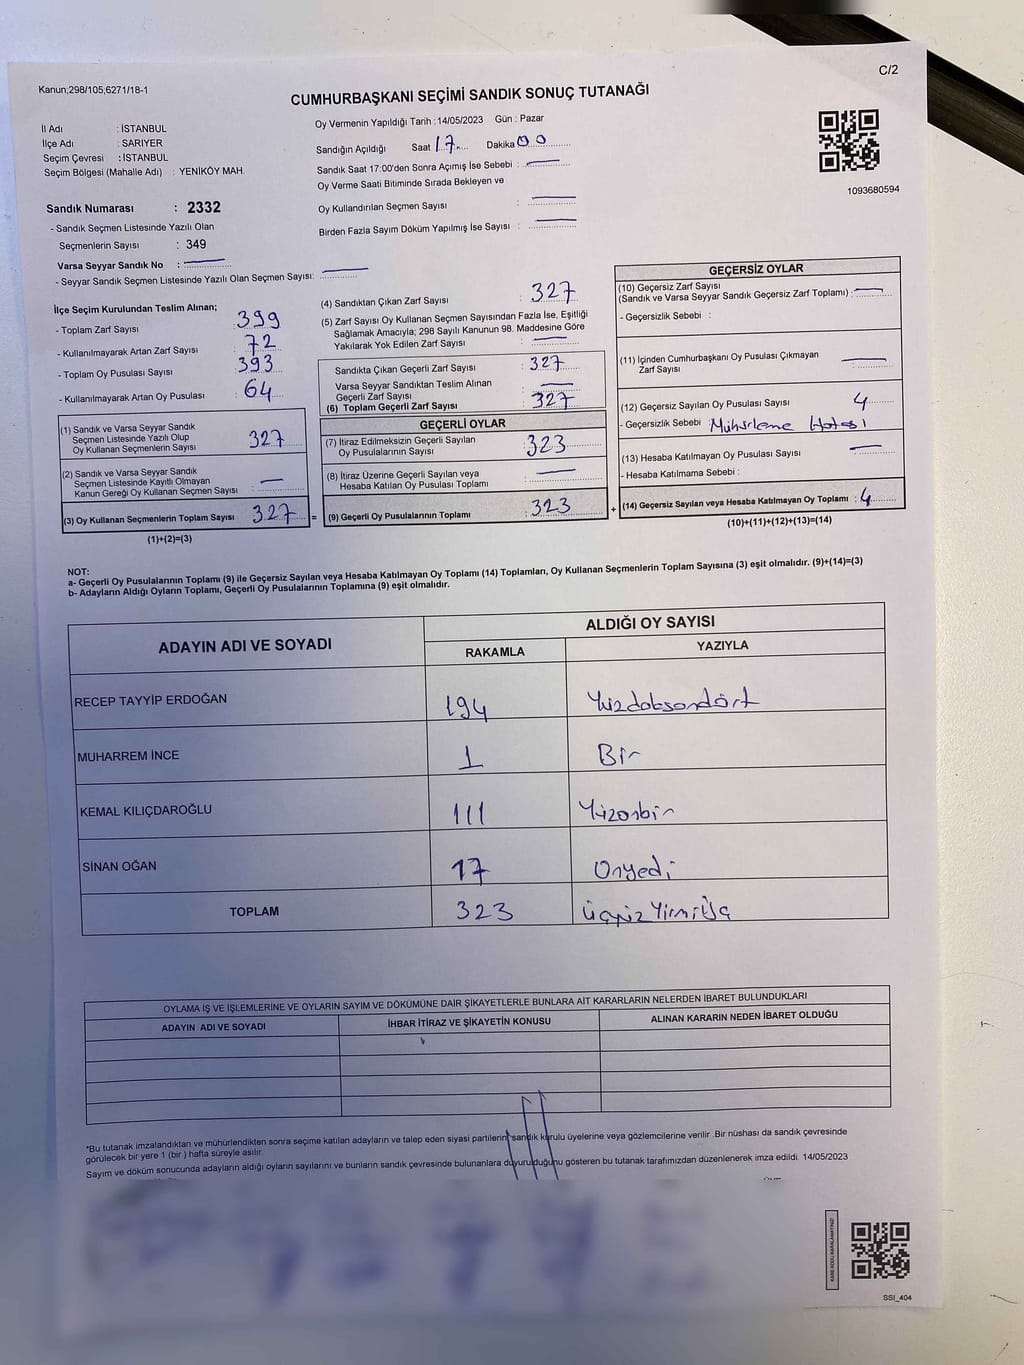 C/2
Kanun;298/105;6271/18-1
CUMHURBAŞKANI SEÇİMİ SANDIK SONUÇ TUTANAĞI
İl Adı : İSTANBUL
İlçe Adı : SARIYER
Seçim Çevresi : İSTANBUL
Seçim Bölgesi (Mahalle Adı) : YENİKÖY MAH.
Sandık Numarası : 2332
- Sandık Seçmen Listesinde Yazılı Olan
Seçmenlerin Sayısı : 349
Varsa Seyyar Sandık No :
- Seyyar Sandık Seçmen Listesinde Yazılı Olan Seçmen Sayısı:
Oy Vermenin Yapıldığı Tarih : 14/05/2023 Gün : Pazar
Sandığın Açıldığı Saat 17 Dakika 00
Sandık Saat 17:00'den Sonra Açımış İse Sebebi :
Oy Verme Saati Bitiminde Sırada Bekleyen ve
Oy Kullandırılan Seçmen Sayısı :
Birden Fazla Sayım Döküm Yapılmış İse Sayısı :
1093680594
İlçe Seçim Kurulundan Teslim Alınan;
- Toplam Zarf Sayısı : 399
- Kullanılmayarak Artan Zarf Sayısı : 72
- Toplam Oy Pusulası Sayısı : 393
- Kullanılmayarak Artan Oy Pusulası : 64
(1) Sandık ve Varsa Seyyar Sandık
Seçmen Listesinde Yazılı Olup
Oy Kullanan Seçmenlerin Sayısı 327
(2) Sandık ve Varsa Seyyar Sandık
Seçmen Listesinde Kayıtlı Olmayan
Kanun Gereği Oy Kullanan Seçmen Sayısı :
(3) Oy Kullanan Seçmenlerin Toplam Sayısı : 327 =
(1)+(2)=(3)
(4) Sandıktan Çıkan Zarf Sayısı : 327
(5) Zarf Sayısı Oy Kullanan Seçmen Sayısından Fazla İse, Eşitliği
Sağlamak Amacıyla; 298 Sayılı Kanunun 98. Maddesine Göre
Yakılarak Yok Edilen Zarf Sayısı :
Sandıkta Çıkan Geçerli Zarf Sayısı : 327
Varsa Seyyar Sandıktan Teslim Alınan
Geçerli Zarf Sayısı :
(6) Toplam Geçerli Zarf Sayısı : 327
GEÇERLİ OYLAR
(7) İtiraz Edilmeksizin Geçerli Sayılan
Oy Pusulalarının Sayısı : 323
(8) İtiraz Üzerine Geçerli Sayılan veya
Hesaba Katılan Oy Pusulası Toplamı :
(9) Geçerli Oy Pusulalarının Toplamı : 323 +
GEÇERSİZ OYLAR
(10) Geçersiz Zarf Sayısı
(Sandık ve Varsa Seyyar Sandık Geçersiz Zarf Toplamı) :
- Geçersizlik Sebebi :
(11) İçinden Cumhurbaşkanı Oy Pusulası Çıkmayan
Zarf Sayısı
(12) Geçersiz Sayılan Oy Pusulası Sayısı : 4
- Geçersizlik Sebebi : Mühürleme Hatası
(13) Hesaba Katılmayan Oy Pusulası Sayısı
- Hesaba Katılmama Sebebi :
(14) Geçersiz Sayılan veya Hesaba Katılmayan Oy Toplamı : 4
(10)+(11)+(12)+(13)=(14)
NOT:
a- Geçerli Oy Pusulalarının Toplamı (9) ile Geçersiz Sayılan veya Hesaba Katılmayan Oy Toplamı (14) Toplamları, Oy Kullanan Seçmenlerin Toplam Sayısına (3) eşit olmalıdır. (9)+(14)=(3)
b- Adayların Aldığı Oyların Toplamı, Geçerli Oy Pusulalarının Toplamına (9) eşit olmalıdır.
ADAYIN ADI VE SOYADI ALDIĞI OY SAYISI
RAKAMLA YAZIYLA
RECEP TAYYİP ERDOĞAN 194 Yüzdoksandört
MUHARREM İNCE 1 Bir
KEMAL KILIÇDAROĞLU 111 Yüzonbir
SİNAN OĞAN 17 Onyedi
TOPLAM 323 Üçyüz Yirmi Üç
OYLAMA İŞ VE İŞLEMLERİNE VE OYLARIN SAYIM VE DÖKÜMÜNE DAİR ŞİKAYETLERLE BUNLARA AİT KARARLARIN NELERDEN İBARET BULUNDUKLARI
ADAYIN ADI VE SOYADI İHBAR İTİRAZ VE ŞİKAYETİN KONUSU ALINAN KARARIN NEDEN İBARET OLDUĞU
*Bu tutanak imzalandıktan ve mühürlendikten sonra seçime katılan adayların ve talep eden siyasi partilerin sandık kurulu üyelerine veya gözlemcilerine verilir .Bir nüshası da sandık çevresinde
görülecek bir yere 1 (bir ) hafta süreyle asılır.
Sayım ve döküm sonucunda adayların aldığı oyların sayılarını ve bunların sandık çevresinde bulunanlara duyurulduğunu gösteren bu tutanak tarafımızdan düzenlenerek imza edildi. 14/05/2023
KARE KODU KARALAMAYINIZ!
SSI_404